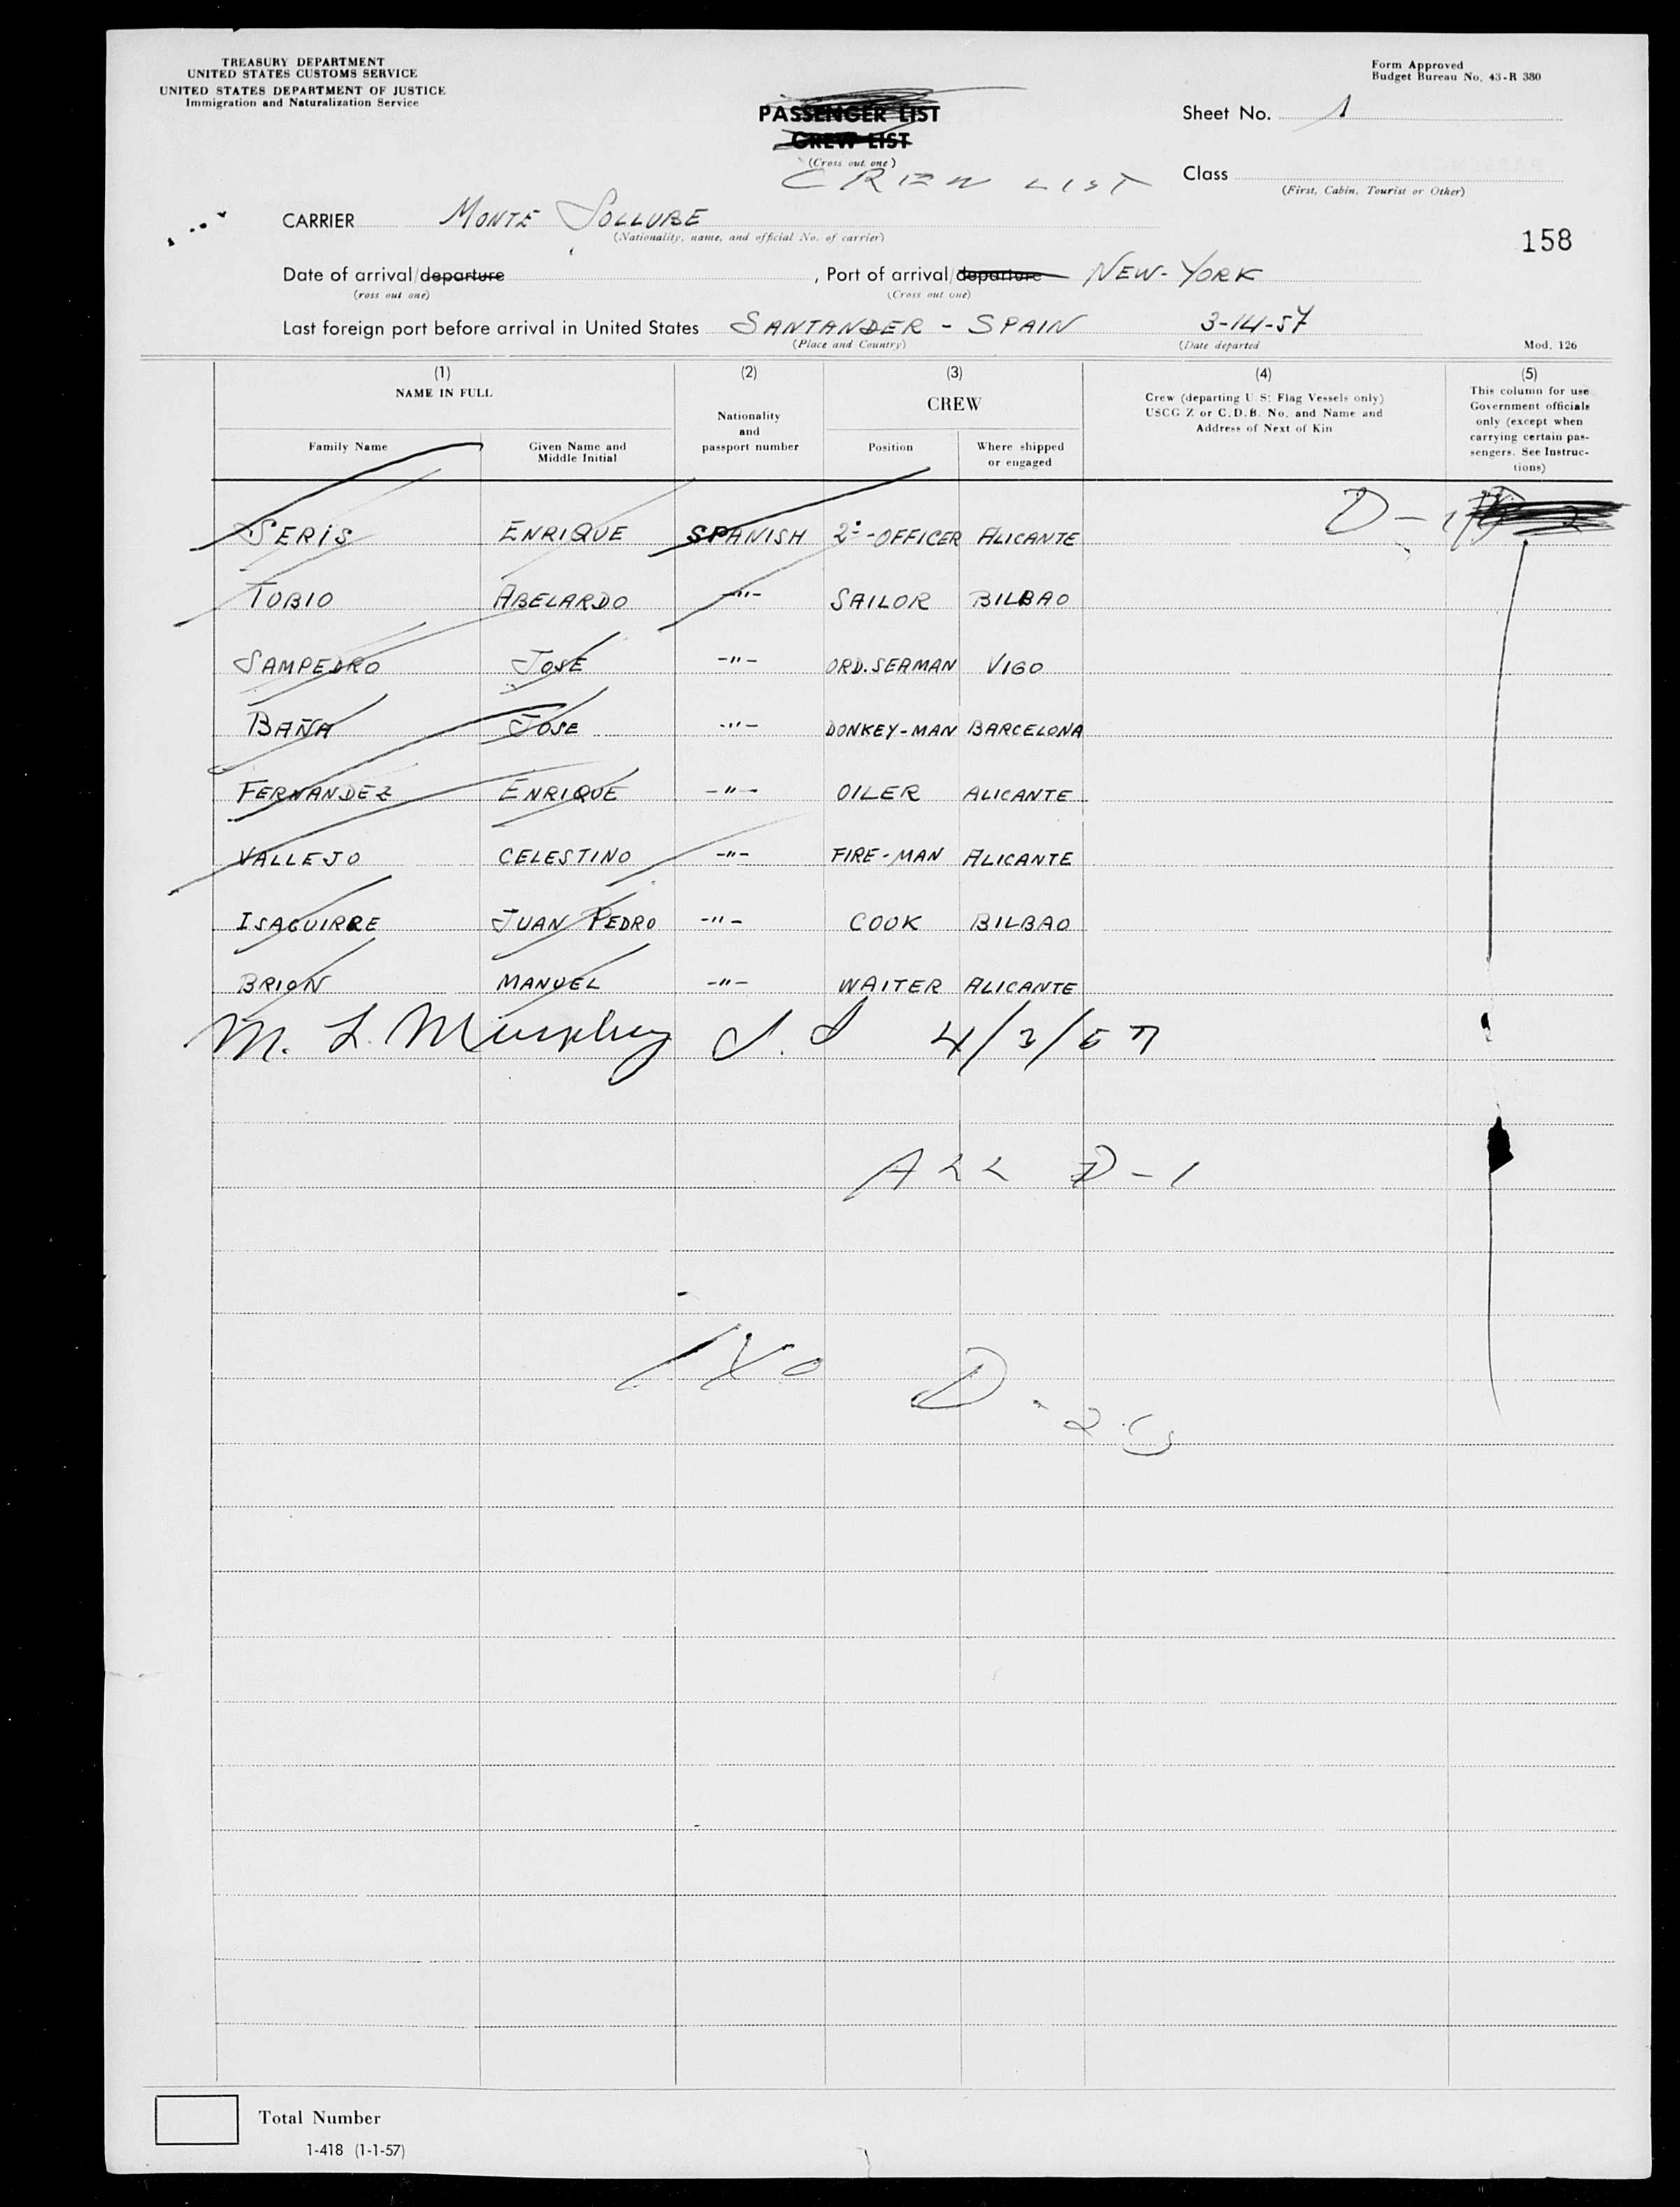 TREASURY DEPARTMENT
UNITED STATES CUSTOMS SERVICE
UNITED STATES DEPARTMENT OF JUSTICE
Immigration and Naturalization Service
Form Approved
Budget Bureau No. 43-R 380
PASSENGER LIST
CREW LIST
(Cross out one)
CREW LIST
Sheet No. 1
Class
(First, Cabin, Tourist or Other)
CARRIER MONTE SOLLUBE
(Nationality, name, and official No. of carrier)
158
Date of arrival/departure , Port of arrival/departure NEW-YORK
(ross out one) (Cross out one)
Last foreign port before arrival in United States SANTANDER - SPAIN 3-14-57
(Place and Country) (Date departed Mod. 126
(1) (2) (3) (4) (5)
NAME IN FULL
Family Name
Given Name and
Middle Initial
Nationality
and
passport number
CREW
Position
Where shipped
or engaged
Crew (departing U S: Flag Vessels only)
USCG Z or C.D.B. No. and Name and
Address of Next of Kin
This column for use
Government officials
only (except when
carrying certain pas-
sengers. See Instruc-
tions)
SERIS ENRIQUE SPANISH 2º-OFFICER ALICANTE D-1
TOBIO ABELARDO -"- SAILOR BILBAO
SAMPEDRO JOSE -"- ORD.SEAMAN VIGO
BAÑA JOSE -"- DONKEY-MAN BARCELONA
FERNANDEZ ENRIQUE -"- OILER ALICANTE
VALLEJO CELESTINO -"- FIRE-MAN ALICANTE
ISAGUIRRE JUAN PEDRO -"- COOK BILBAO
BRION MANUEL -"- WAITER ALICANTE
M. L. Murphy 4/3/57
ALL D-1
D-2
Total Number
1-418 (1-1-57)